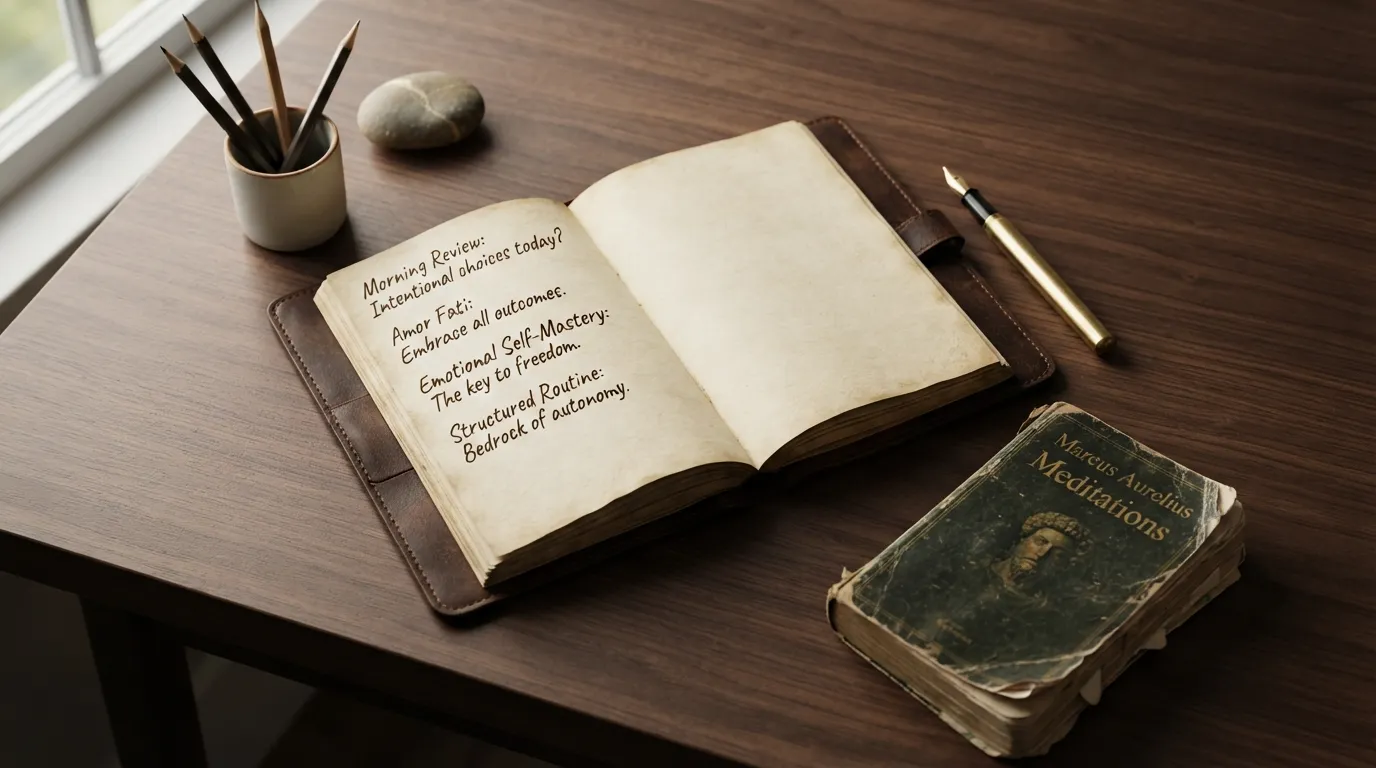 Morning Review:
Intentional choices today?
Amor Fati:
Embrace all outcomes.
Emotional Self-Mastery:
The key to freedom.
Structured Routine:
Bedrock of autonomy.
Marcus Aurelius
Meditations